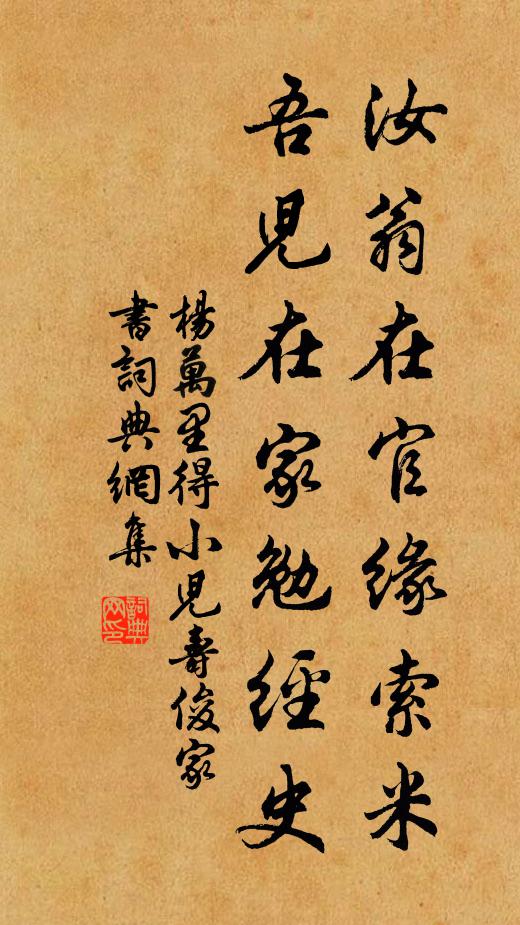 汝翁在官缘索米
吾児在家勉經史
楊萬里得小児壽俊家
書詞典網集
詞典
网印